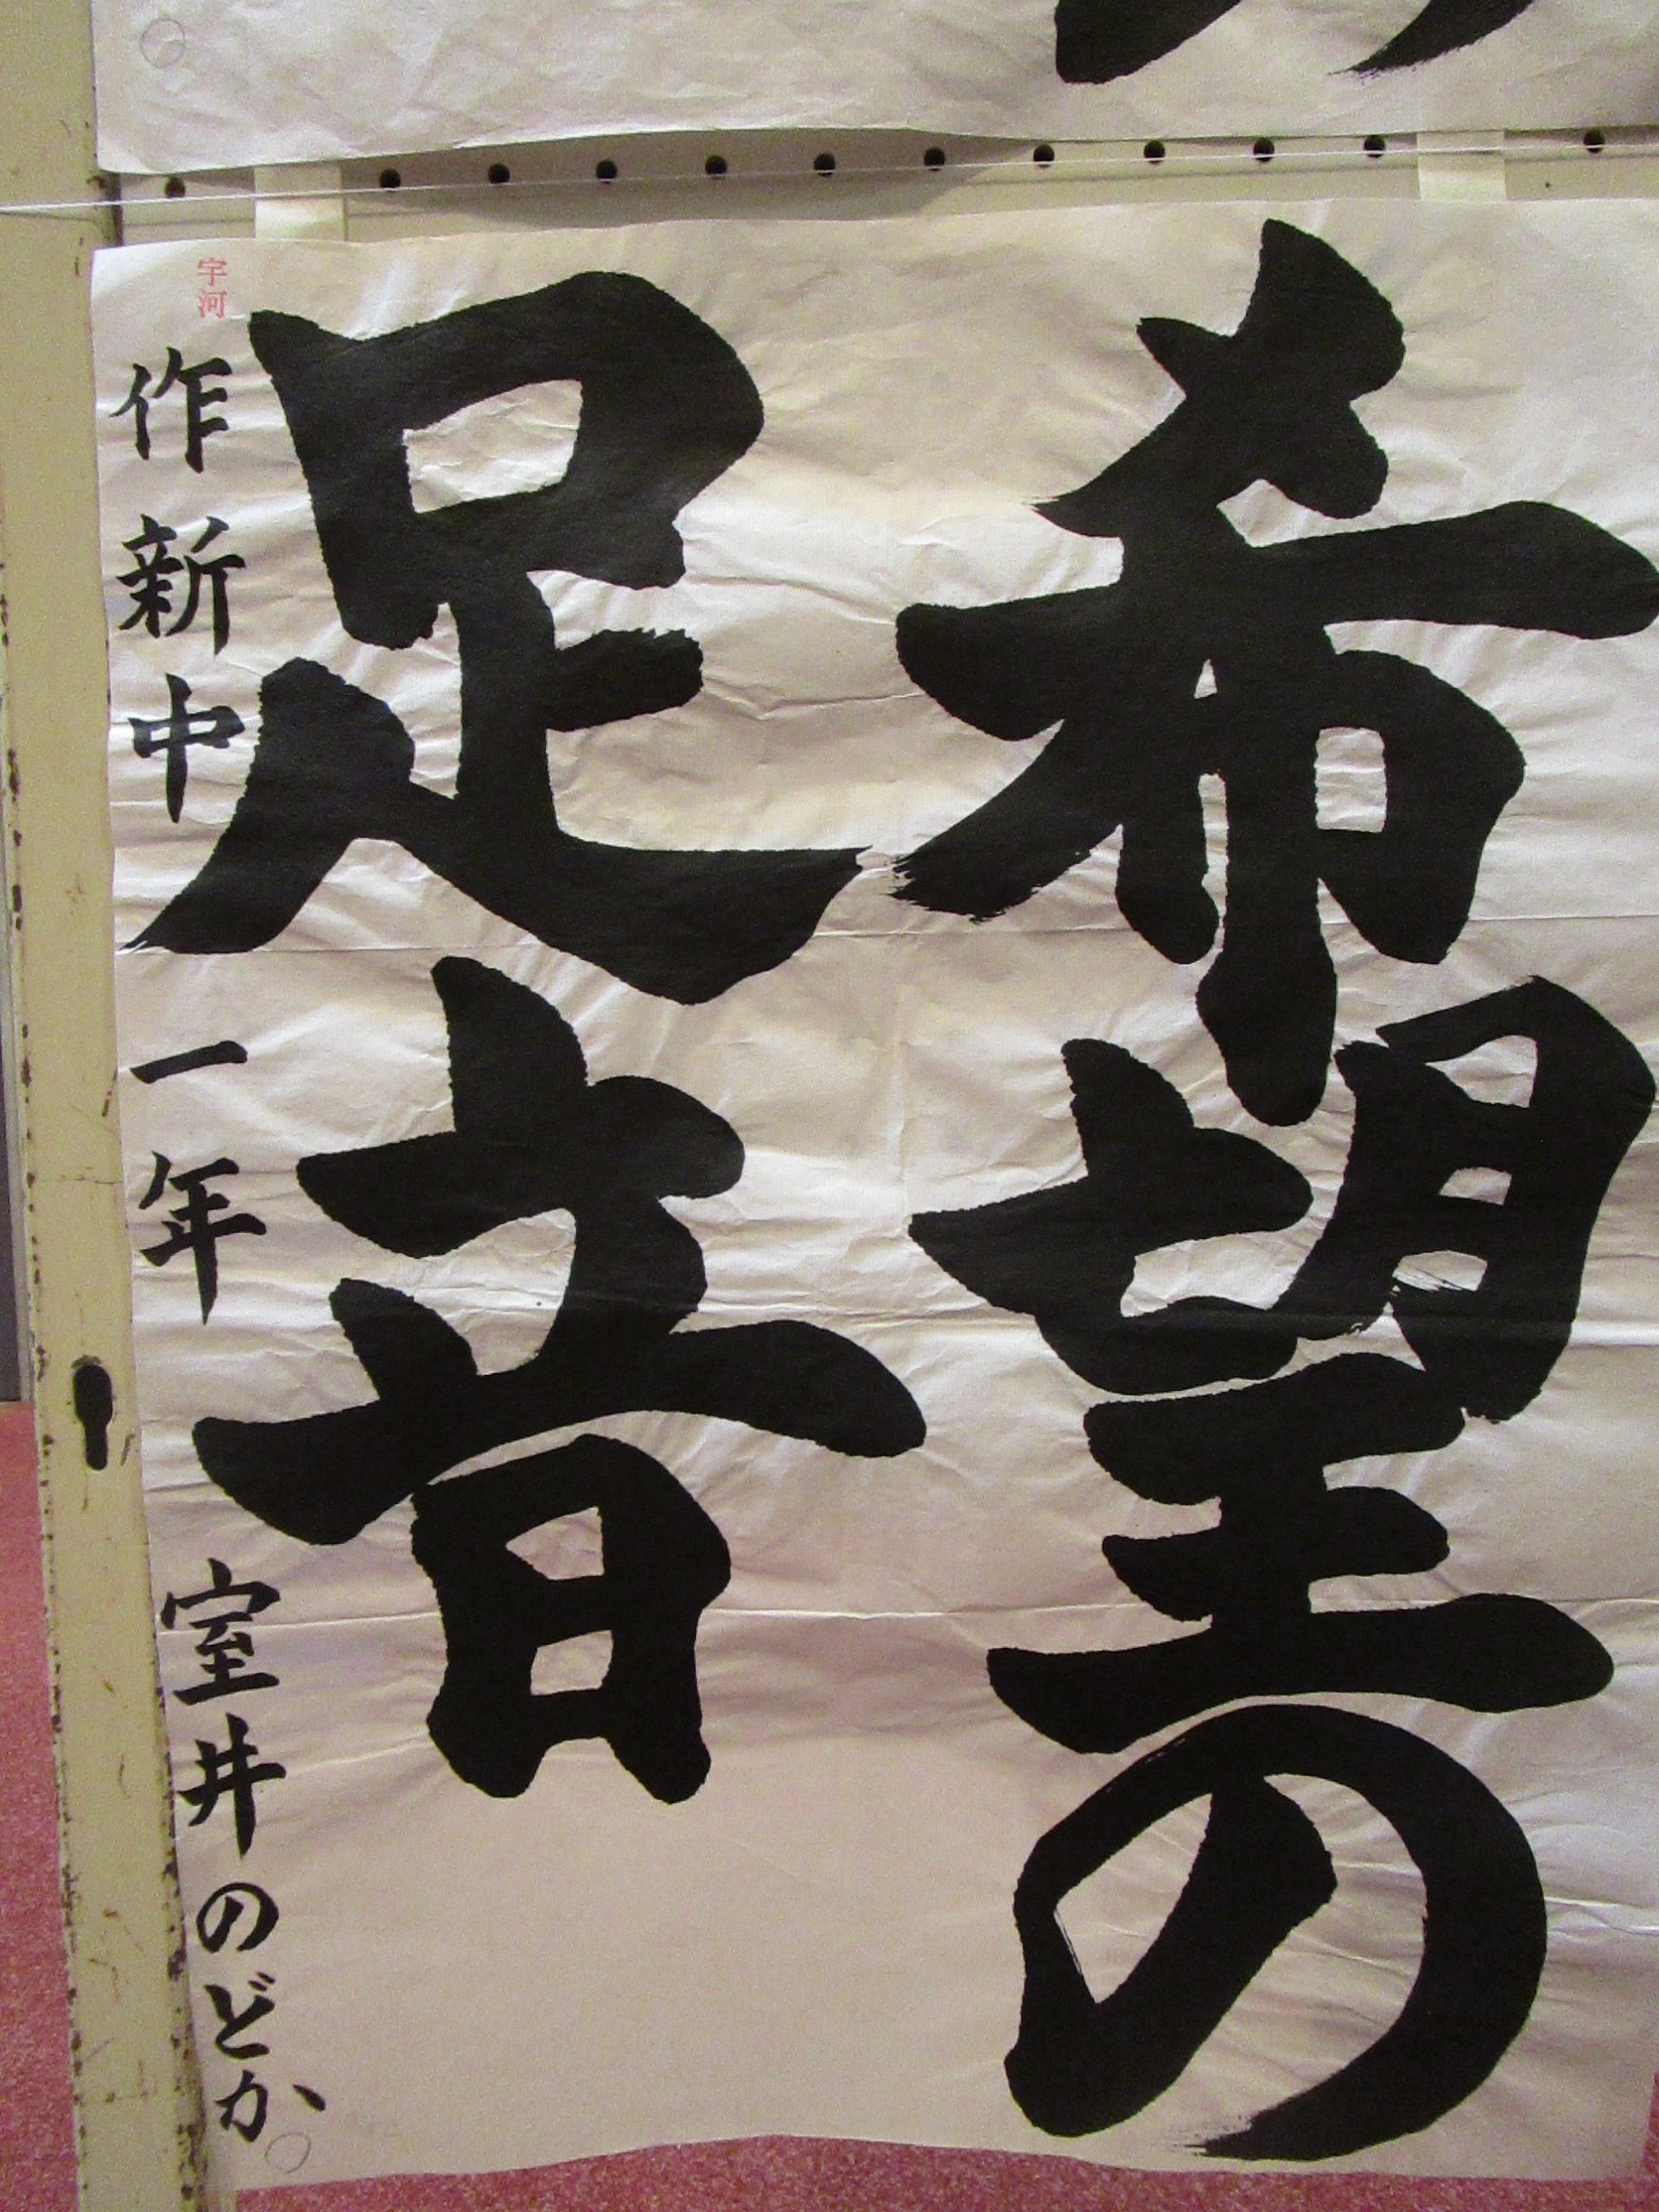 希望の
足音
宇河
作新中 一年 室井のどか